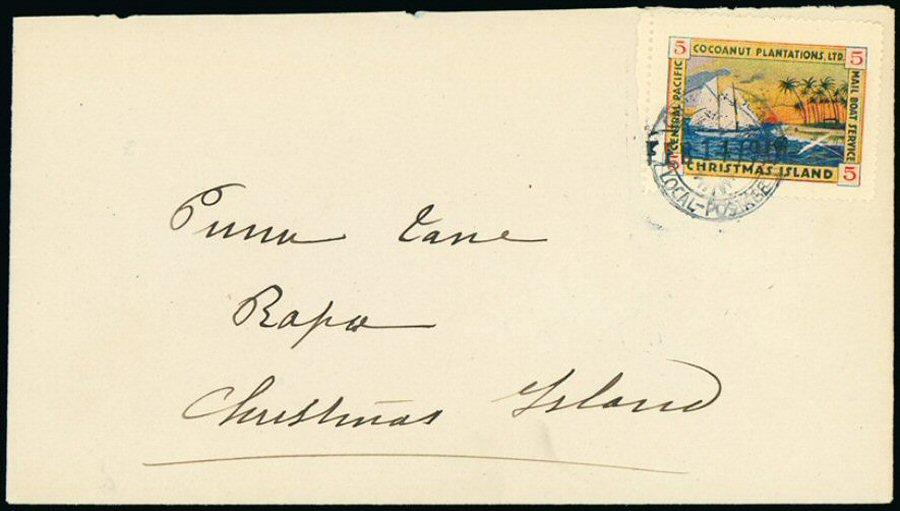 5 COCOANUT PLANTATIONS, LTD. 5
CENTRAL PACIFIC
MAIL BOAT SERVICE
5 CHRISTMAS ISLAND 5
LOCAL-POSTAGE
Puna
Rapa
Christmas Island